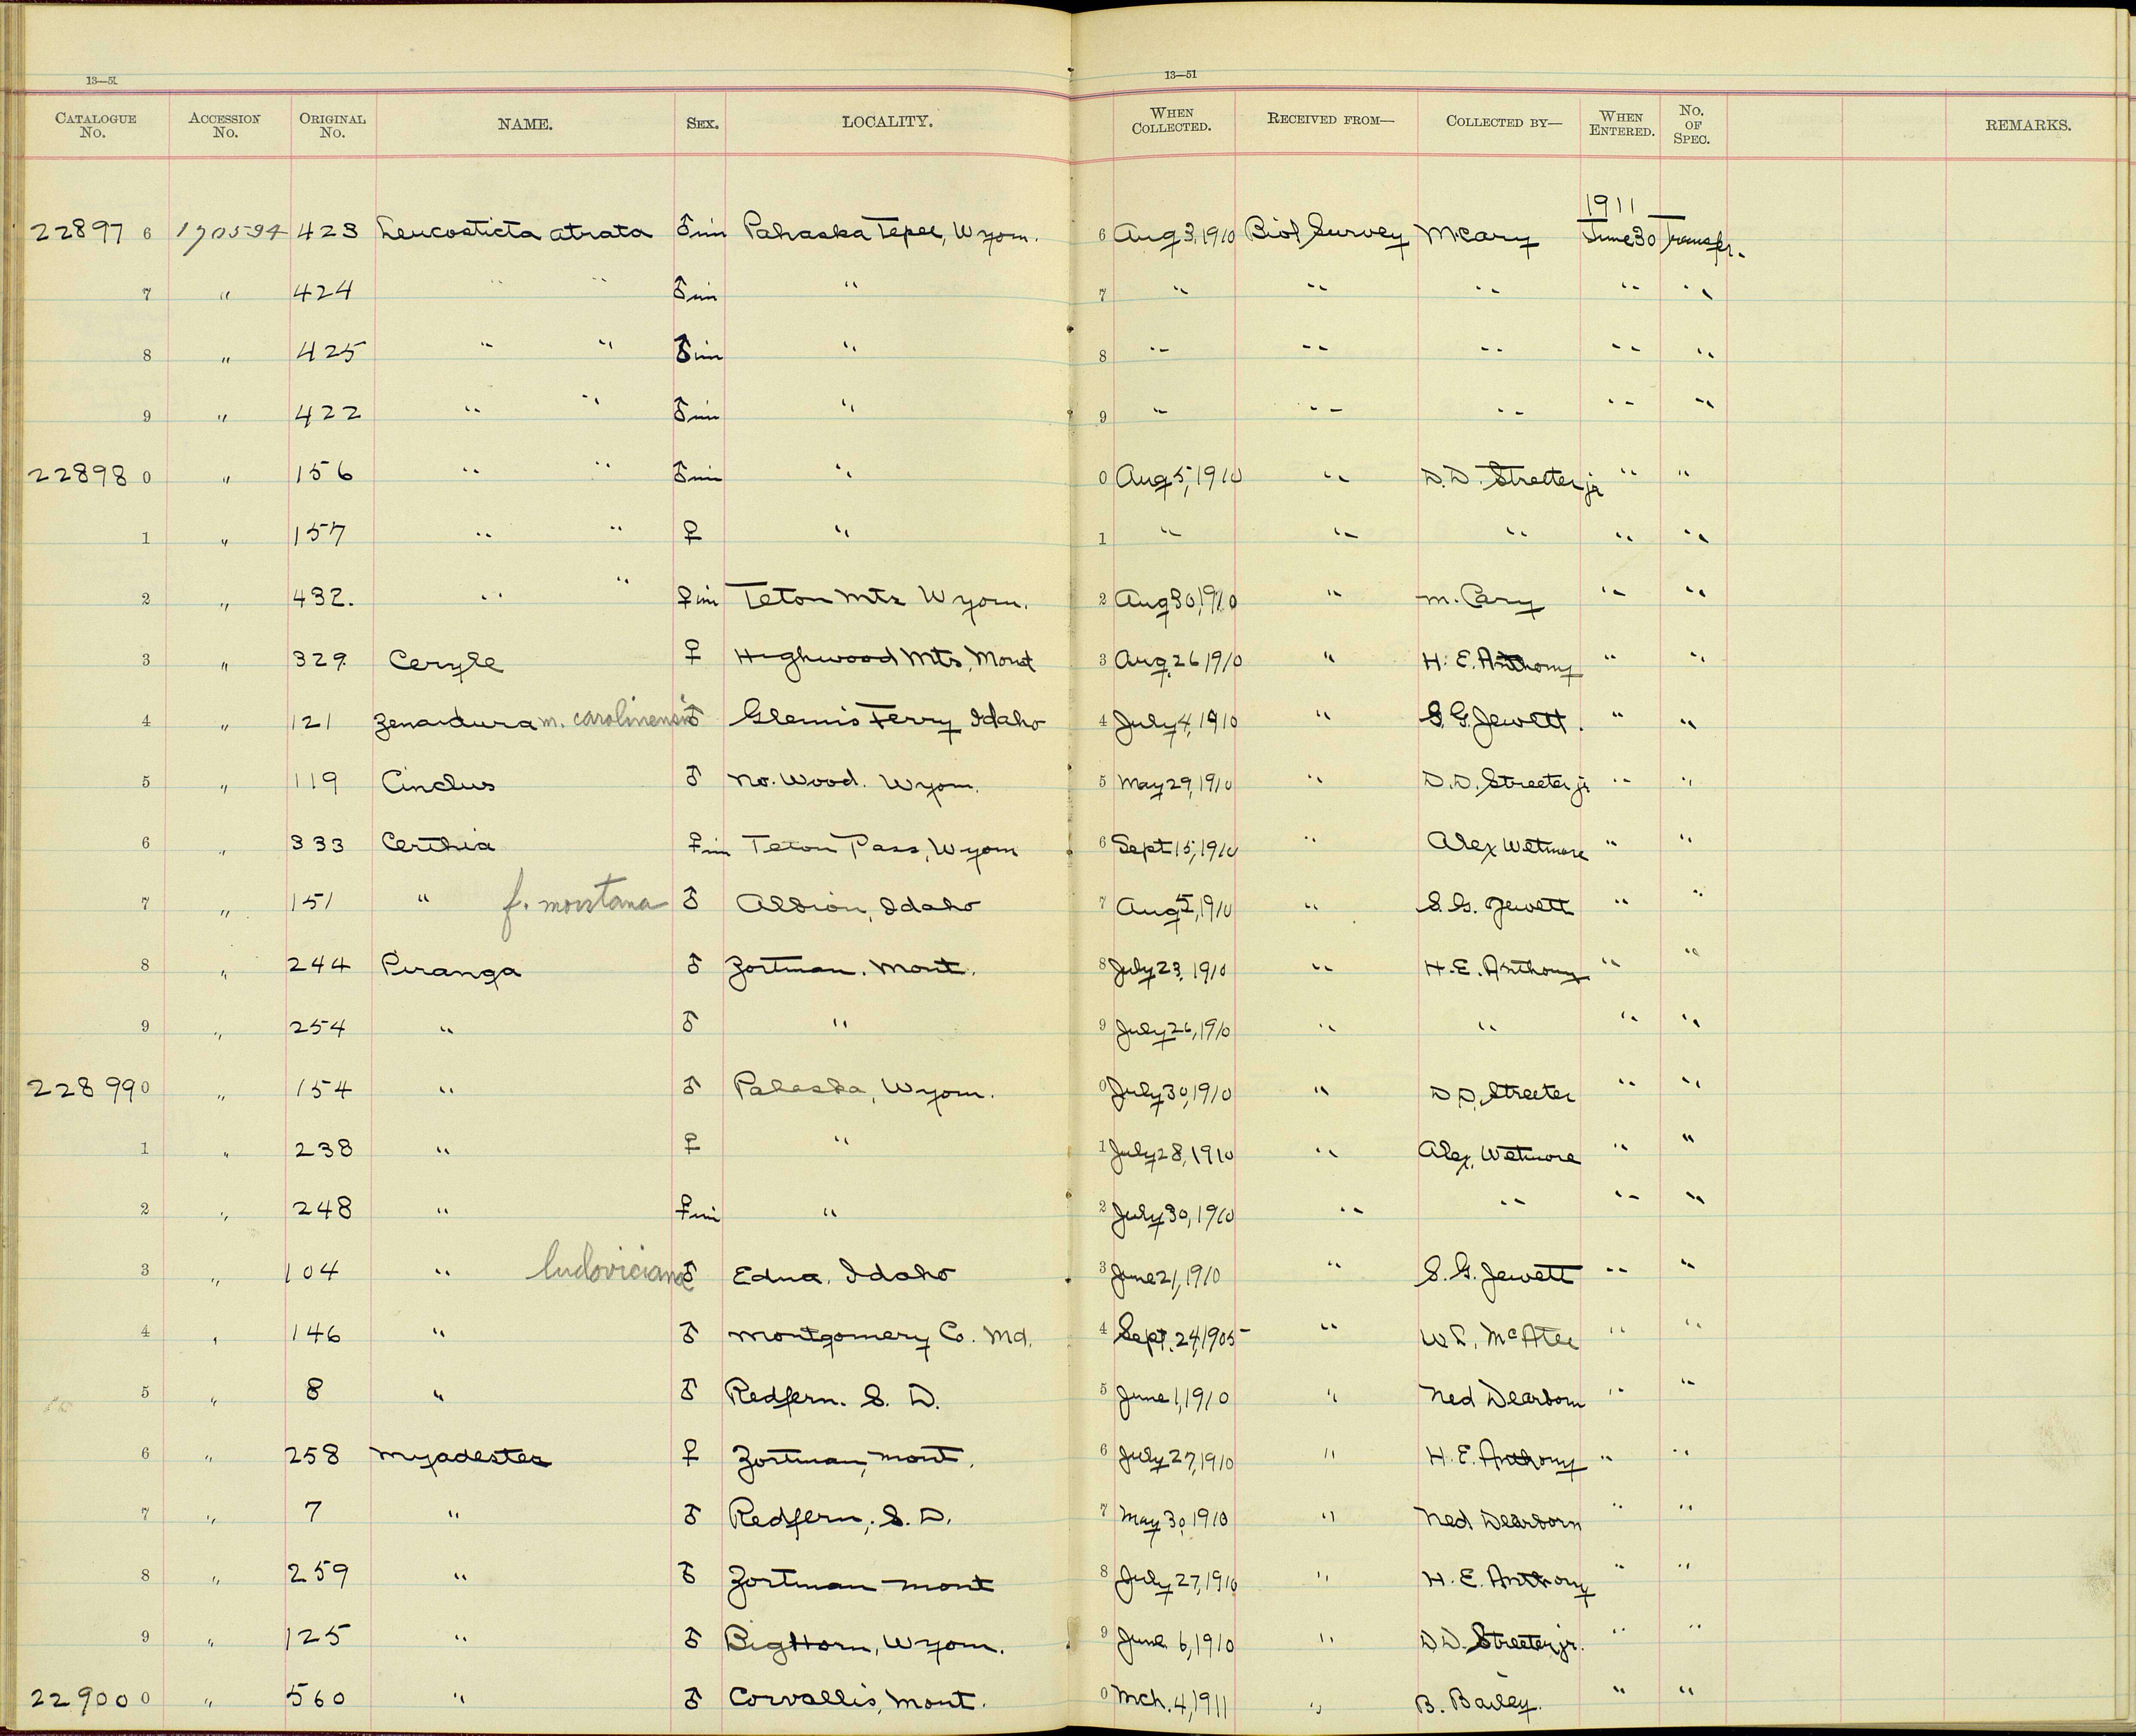 13—51 13—51
CATALOGUE No. ACCESSION No. ORIGINAL No. NAME. SEX. LOCALITY. WHEN COLLECTED. RECEIVED FROM— COLLECTED BY— WHEN ENTERED. NO. OF SPEC. REMARKS.
1911
22897 6 170594 423 Leucosticta atrata ♂ im Pahaska Tepee, Wyom. 6 Aug 3, 1910 Biol Survey M Cary June 30 Transfr.
7 " 424 " " ♂ im " 7 " " " " "
8 " 425 " " ♂ im " 8 " " " " "
9 " 422 " " ♂ im " 9 " " " " "
22898 0 " 156 " " ♂ im " 0 Aug 5, 1910 " D. D. Streeter jr " "
1 " 157 " " ♀ " 1 " " " " "
2 " 432. " " ♀ im Teton Mts Wyom. 2 Aug 30, 1910 " M. Cary " "
3 " 329 Ceryle ♀ Highwood Mts, Mont 3 Aug. 26 1910 " H. E. Anthony " "
4 " 121 Zenaidura m. carolinensis ♂ Glennis Ferry Idaho 4 July 4, 1910 " S. G. Jewett. " "
5 " 119 Cinclus ♂ No. Wood. Wyom. 5 May 29, 1910 " D. D. Streeter jr " "
6 " 333 Certhia ♀ im Teton Pass, Wyom 6 Sept 15, 1910 " Alex Wetmore " "
7 " 151 " f. montana ♂ Albion, Idaho 7 Aug 5, 1910 " S. G. Jewett " "
8 " 244 Piranga ♂ Zortman. Mont. 8 July 23, 1910 " H. E. Anthony " "
9 " 254 " ♂ " 9 July 26, 1910 " " " "
22899 0 " 154 " ♂ Pahaska, Wyom. 0 July 30, 1910 " D. D. Streeter " "
1 " 238 " ♀ " 1 July 28, 1910 " Alex. Wetmore " "
2 " 248 " ♀ im " 2 July 30, 1910 " " " "
3 " 104 " ludoviciana ♂ Edna, Idaho 3 June 21, 1910 " S. G. Jewett " "
4 " 146 " ♂ Montgomery Co. Md. 4 Sept. 24, 1905 " W. L. McAtee " "
5 " 8 " ♂ Redfern. S. D. 5 June 1, 1910 " Ned Dearborn " "
6 " 258 Myadestes ♀ Zortman, Mont. 6 July 27, 1910 " H. E. Anthony " "
7 " 7 " ♂ Redfern, S. D. 7 May 30, 1910 " Ned Dearborn " "
8 " 259 " ♂ Zortman Mont 8 July 27, 1910 " H. E. Anthony " "
9 " 125 " ♂ Big Horn, Wyom. 9 June 6, 1910 " D D. Streeter jr. " "
22900 0 " 560 " ♂ Corvallis, Mont. 0 Mch. 4, 1911 " B. Bailey. " "